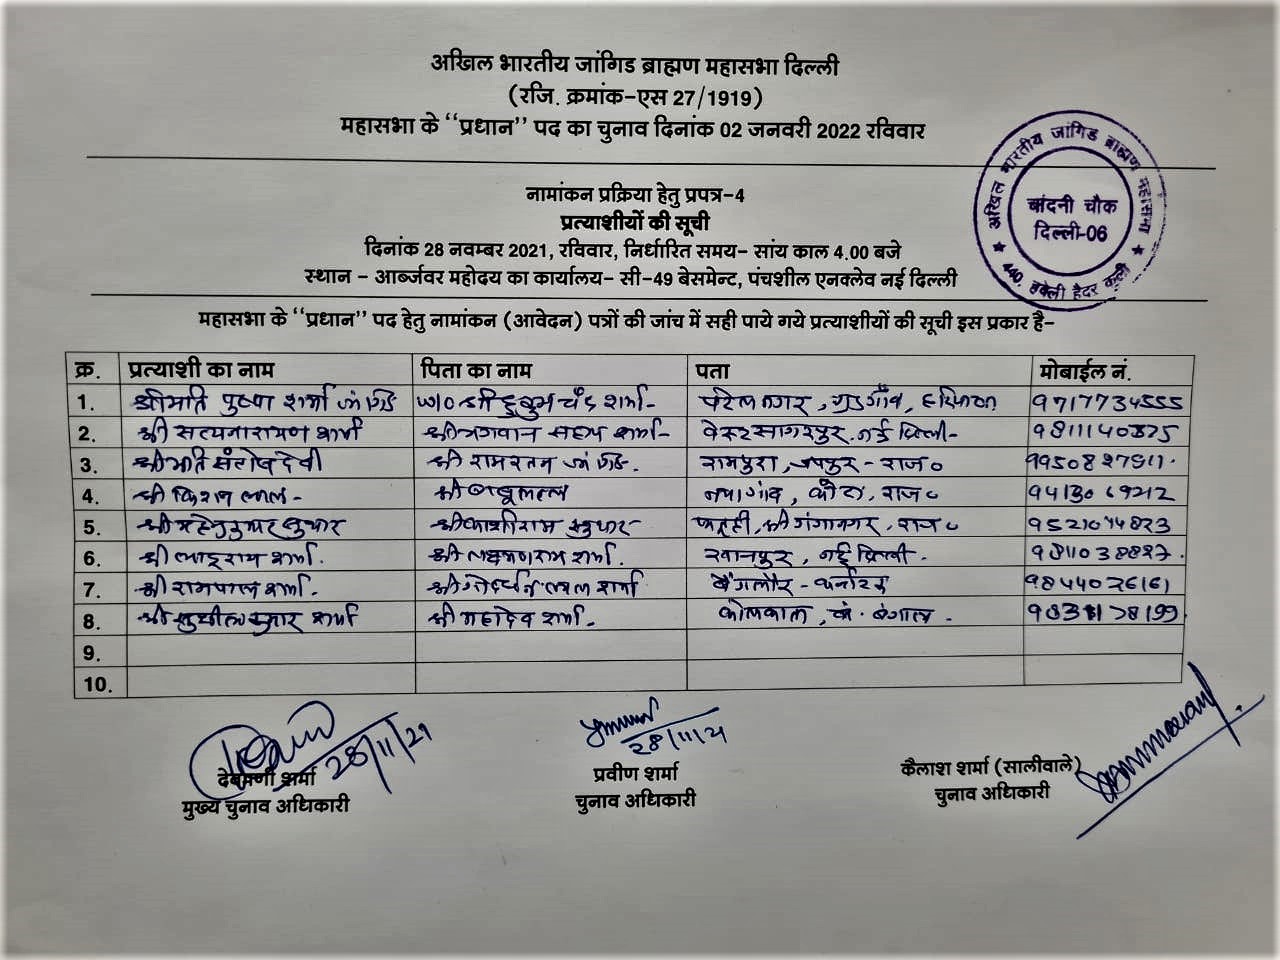 अखिल भारतीय जांगिड ब्राह्मण महासभा दिल्ली
(रजि. क्रमांक-एस 27/1919)
महासभा के "प्रधान" पद का चुनाव दिनांक 02 जनवरी 2022 रविवार
अखिल भारतीय जांगिड ब्राह्मण महासभा
चांदनी चौक
दिल्ली-06
440, हवेली हैदर कुली
नामांकन प्रक्रिया हेतु प्रपत्र-4
प्रत्याशीयों की सूची
दिनांक 28 नवम्बर 2021, रविवार, निर्धारित समय- सांय काल 4.00 बजे
स्थान - आर्ब्जवर महोदय का कार्यालय- सी-49 बेसमेन्ट, पंचशील एनक्लेव नई दिल्ली
महासभा के "प्रधान" पद हेतु नामांकन (आवेदन) पत्रों की जांच में सही पाये गये प्रत्याशीयों की सूची इस प्रकार है-
क्र. प्रत्याशी का नाम पिता का नाम पता मोबाईल नं.
1. श्रीमति पुष्पा शर्मा जांगिड W/O श्री हुकुम चंद शर्मा- पटेल नगर, गुडगाँव, हरियाणा 9717734555
2. श्री सत्यनारायण शर्मा श्री भगवान सहाय शर्मा- वेस्ट सागरपुर, नई दिल्ली- 9811140375
3. श्रीमति संतोष देवी श्री रामरतन जांगिड. रामपुरा, जयपुर - राज०
4. श्री किशन लाल- श्री बाबूलाल नयागांव, कोटा, राज०
5. श्री सुथार श्री काशीराम सुथार- श्री गंगानगर, राज०
6. श्री लादूराम शर्मा. श्री लक्ष्मणराम शर्मा. खानपुर, नई दिल्ली.
7. श्री रामपाल शर्मा. श्री गोर्वधन लाल शर्मा बैंगलौर - कर्नाटक 9844026161
8. श्री सुशील कुमार शर्मा श्री महादेव शर्मा- कोलकाता, वे. बंगाल.
9.
10.
28/11/21
28/11/21
देवमणी शर्मा
मुख्य चुनाव अधिकारी
प्रवीण शर्मा
चुनाव अधिकारी
कैलाश शर्मा (सालीवाले)
चुनाव अधिकारी